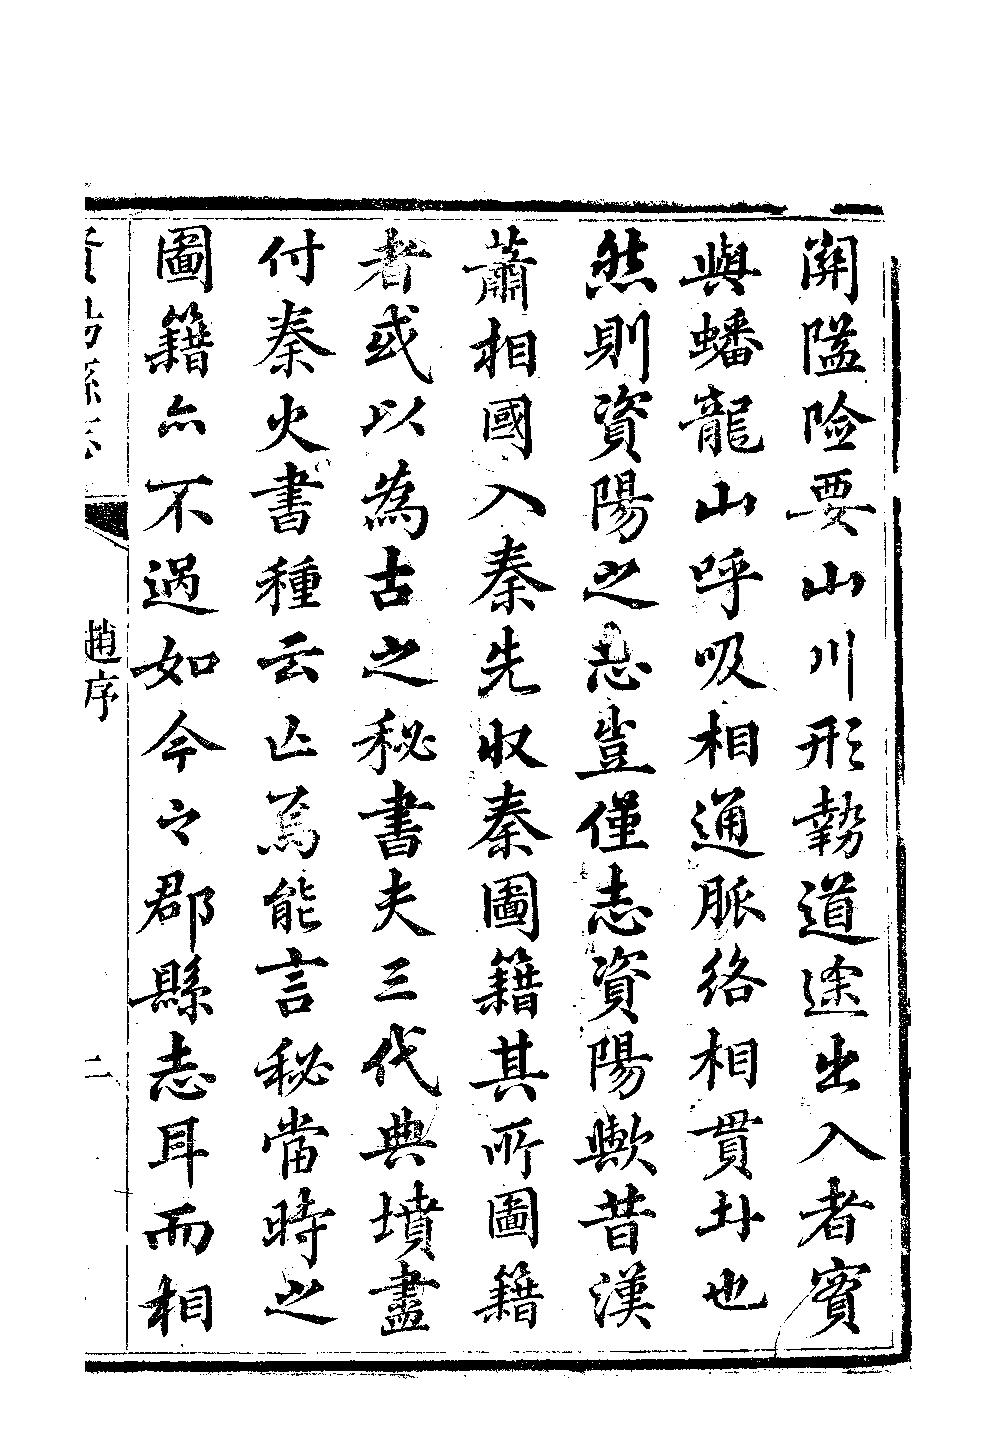 關隘險要山川形勢道途出入者賓
與蟠龍山呼吸相通脈絡相貫也
然則資陽之志豈僅志資陽歟昔漢
蕭相國入秦先收秦圖籍其所圖籍
者或以為古之秘書夫三代典墳盡
付秦火書種云亡焉能言秘當時之
圖籍亦不過如今之郡縣志耳而相
資陽縣志
趙序
二